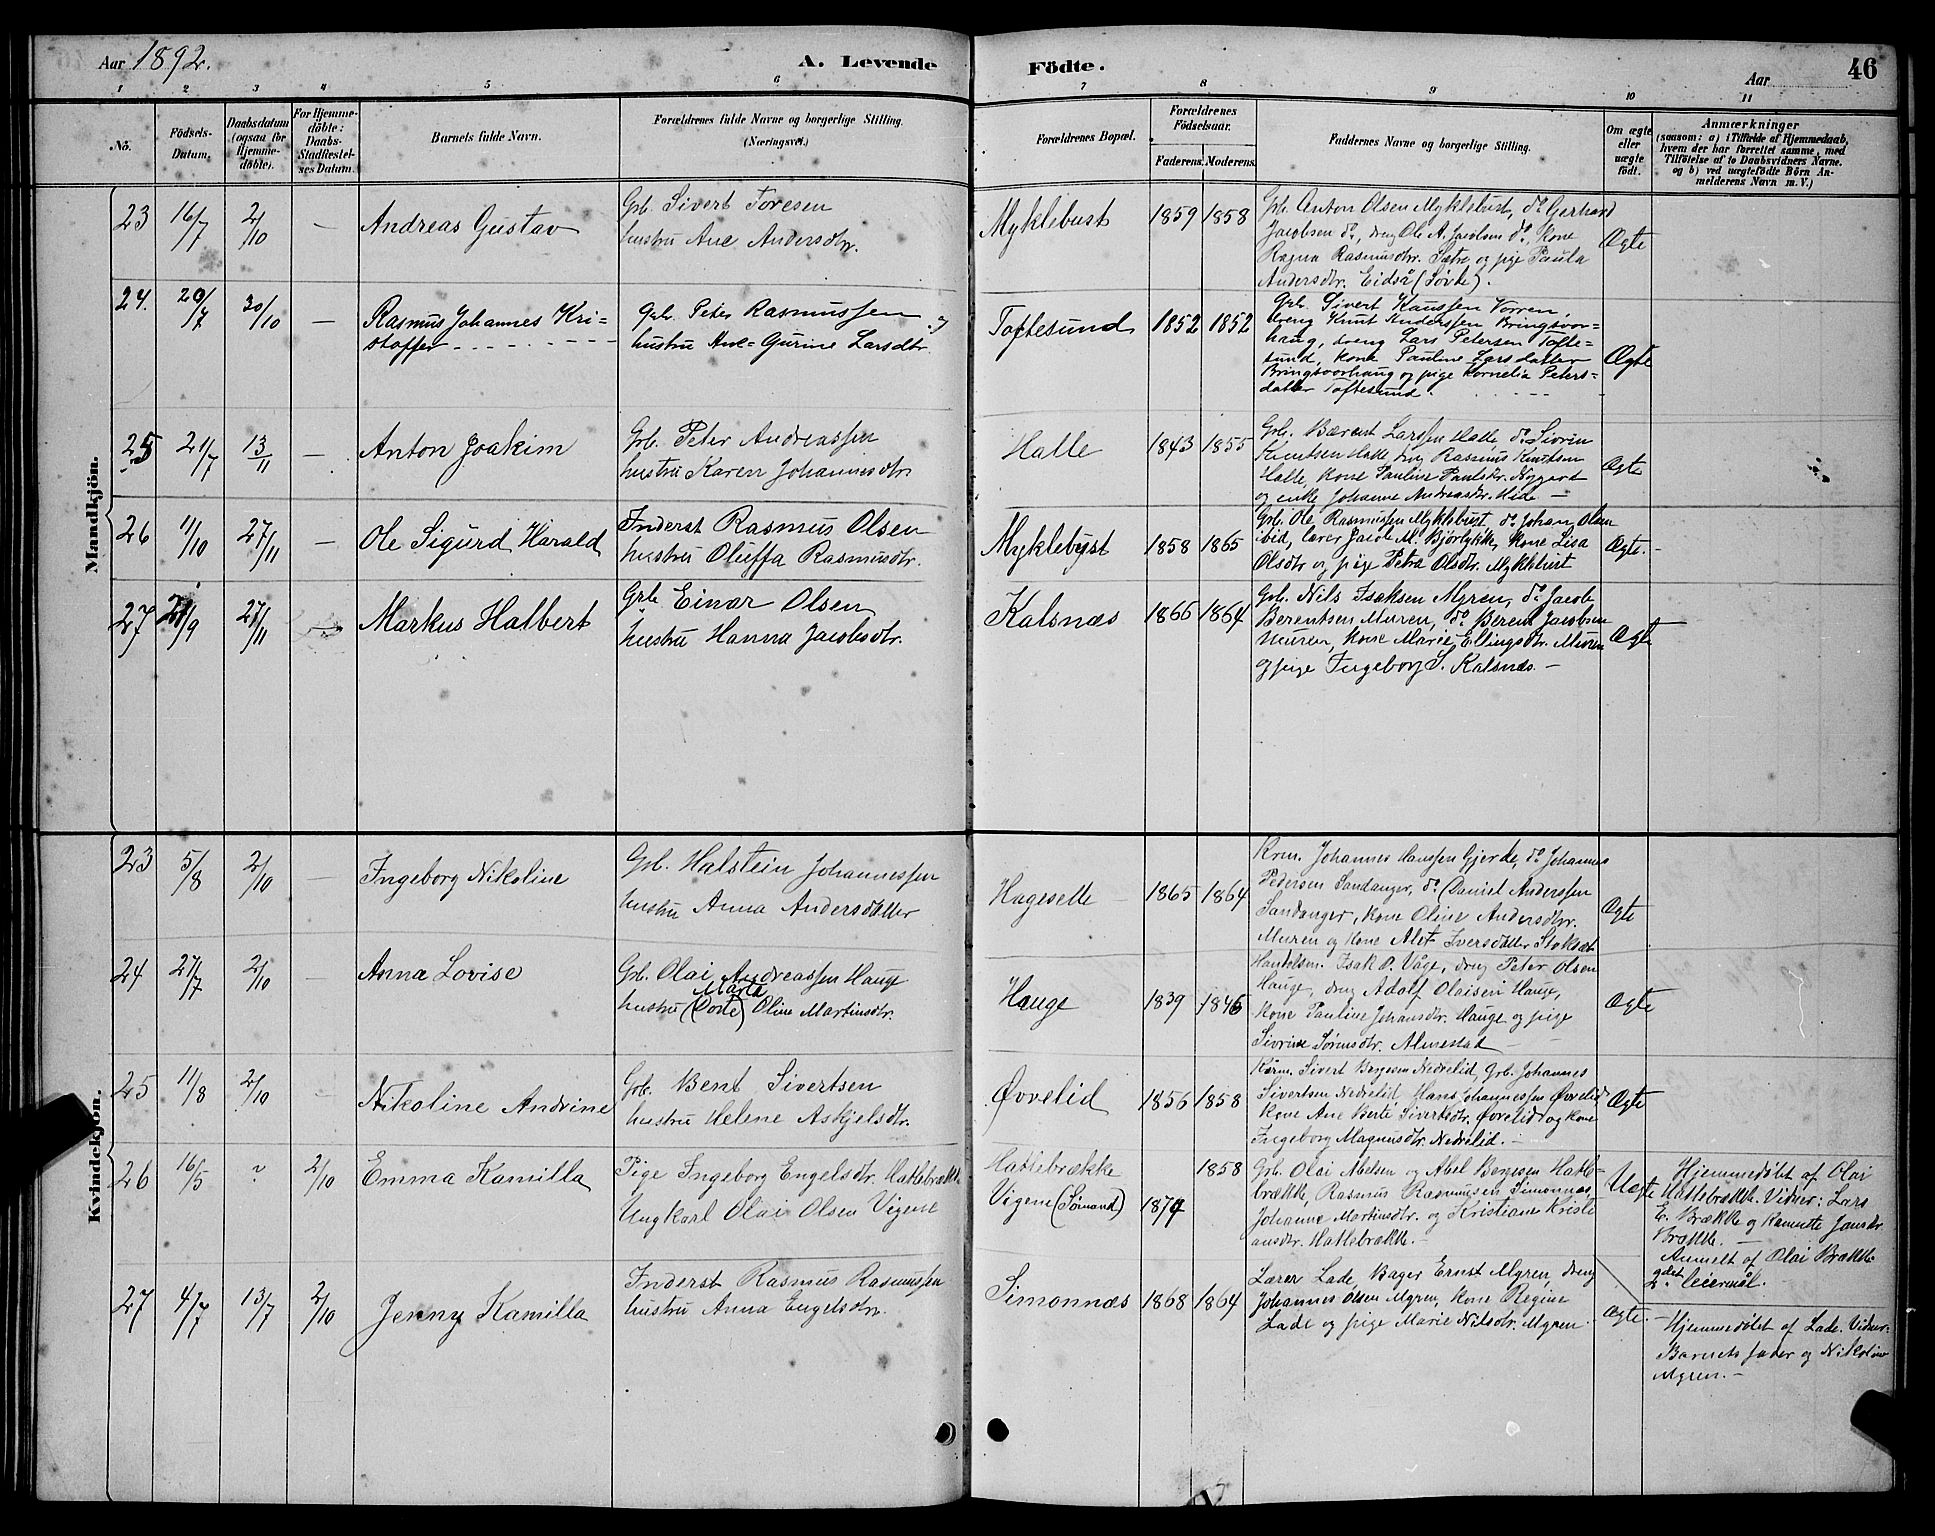 Aar 1892.
A. Levende
Födte.
Aar
46
1 2 3 4 5 6 7 8 9 10 11
No.
Födsels-
Datum.
Daabsdatum
(ogsaa for
Hjemme-
döbte).
For Hjemme-
döbte:
Daabs-
Stadfæstel-
ses Datum.
Barnets fulde Navn.
Forældrenes fulde Navne og borgerlige Stilling.
(Næringsvei.)
Forældrenes Bopæl.
Forældrenes
Födselsaar.
Faderens. Moderens.
Faddernes Navne og borgerlige Stilling.
Om ægte
eller
uægte
födt.
Anmærkninger
(saasom: a) i Tilfælde af Hjemmedaab,
hvem der har forrettet samme, med
Tilföielse af to Daabsvidners Navne.
og b) ved uægtefödte Börn An-
melderens Navn m. V.)
Mandkjön.
23 16/7 2/10 — Andreas Gustav
Grb. Sivert Toresen
hustru Ane Andersdtr.
Myklebust 1859 1858
Grb. Anton Olsen Myklebust, do Gerhard
Jacobsen do, dreng Ole A. Jacobsen do, kone
Ragna Rasmusdtr. Sætre og pige Paula
Andersdtr. Eidså (Søvde).
Ægte
24. 20/7 30/10 — Rasmus Johannes Kri=
stoffer
Grb. Peter Rasmussen og
hustru Ane=Gurine Larsdtr.
Toftesund 1852 1852
Grb. Sivert Knussen Vorren,
dreng Knut Anderssen Bringsvor=
haug, dreng Lars Petersen Tofte=
sund, kone Pauline Larsdatter
Bringsvorhaug og pige Kornelia Peters=
datter Toftesund.
Ægte
25 21/7 13/11 — Anton Joakim
Grb. Peter Andreassen
hustru Karen Johannesdtr.
Halle 1843 1855
Grb. Bærent Larssen Halle, do Sivrin
Knutsen Halle dreng Rasmus Knutsen
Halle, kone Pauline Paulsdtr. Nygard
og enke Johanne Andreasdtr. Hide —
Ægte
26 11/10 27/11 — Ole Sigurd Harald
Inderst Rasmus Olsen
hustru Oluffa Rasmusdtr.
Myklebust 1858 1865
Grb. Ole Rasmussen Myklebust, do Johan Olsen
ibid, lærer Jacob M. Bjørlykke, kone Lisa
Olsdtr og pige Petra Olsdtr. Myklebust
Ægte. —
27 21/9 27/11 — Markus Halbert
Grb Einar Olsen
hustru Hanna Jacobsdtr.
Kalsnæs 1866 1864
Grb. Nils Isaksen Myren, do Jacob
Berentsen Muren, do Berent Jacobsen
Muren, kone Marie Ellingsdtr. Muren
og pige Ingeborg S. Kalsnæs. —
Ægte
Kvindekjön.
23 5/8 2/10 — Ingeborg Nikoline
Grb. Halstein Johannessen
hustru Anna Andersdatter
Hageselle 1865 1864
Krm. Johannes Hanssen Gjerde, do Johannes
Pedersen Sandanger, do Daniel Anderssen
Sandanger, kone Oline Andersdtr.
Muren og kone Alet Iversdatter Stoksæt
Ægte
24 27/7 2/10 — Anna Lovise
Grb. Olai Andreassen Hauge
Marta
hustru (Dorte) Oline Martinsdtr.
Hauge 1839 1846
Handelsm. Isak P. Våge, dreng Peter Olsen
Hauge, dreng Adolf Olaisen Hauge,
kone Pauline Johansdtr. Hauge og pige
Sivrine Sørensdtr. Almestad —
Ægte
25 11/8 2/10 — Nikoline Andrine
Grb. Bent Sivertsen
hustru Helene Askjelsdtr.
Øvrelid 1856 1858
Kårm. Sivert Bergesen Nedrelid, Grb. Johannes
Sivertsen Nedrelid, Hans Johannessen Øvrelid
kone Ane Berte Sivertsdtr. Øvrelid og kone
Ingeborg Magnusdtr. Nedrelid. —
Ægte
26 16/5 ? 2/10 Emma Kamilla
Pige Ingeborg Engelsdtr. Hatlebrække
Ungkarl Olai Olsen Vigene
Hatlebrække 1858
Vigene (Sørnand) 1874
Grb. Olai Abelsen og Abel Bergesen Hatle-
brække, Rasmus Rasmussen Simonnæs,
Johanne Martinsdtr. og Kristiane Kristi
ansdtr. Hatlebrække. —
Uægte
Hjemmedøbt af Olai
Hatlebrække. Vidner: Lars
E. Brække og Jansdtr
Brække. —
Anmelt af Olai Brække
2det leiermål. —
27 4/7 13/7 2/10 Jenny Kamilla
Inderst Rasmus Rasmussen
hustru Anna Engelsdtr.
Simonnæs 1868 1864
Lærer Lade, Bager Ernst Myren, dreng
Johannes Olsen Myren, kone Regine
Lade og pige Marie Nilsdtr. Myren.
Ægte. —
Hjemmedøbt af Lade. Vidner:
Barnets fader og Nikoline
Myren. —